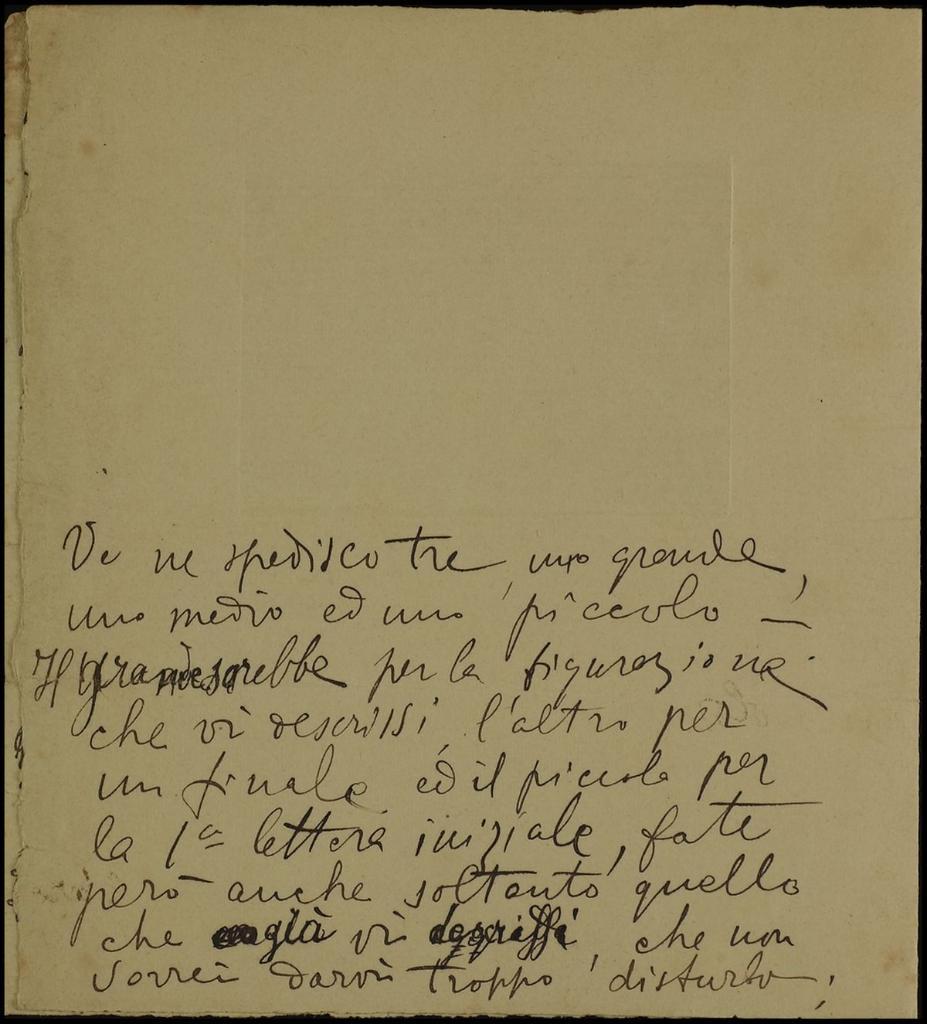 Ve ne spedisco tre, uno grande,
uno medio ed uno piccolo —
Il grande sarebbe per la figurazione
che vi descrissi, l'altro per
un finale ed il piccolo per
la 1ª lettera iniziale, fate
però anche soltanto quello
che già vi descrissi, che non
vorrei darvi troppo disturbo;